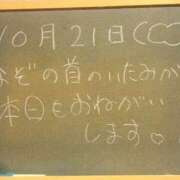 10月21日(
なぞの首のいたみが
本日もおねがい
します。